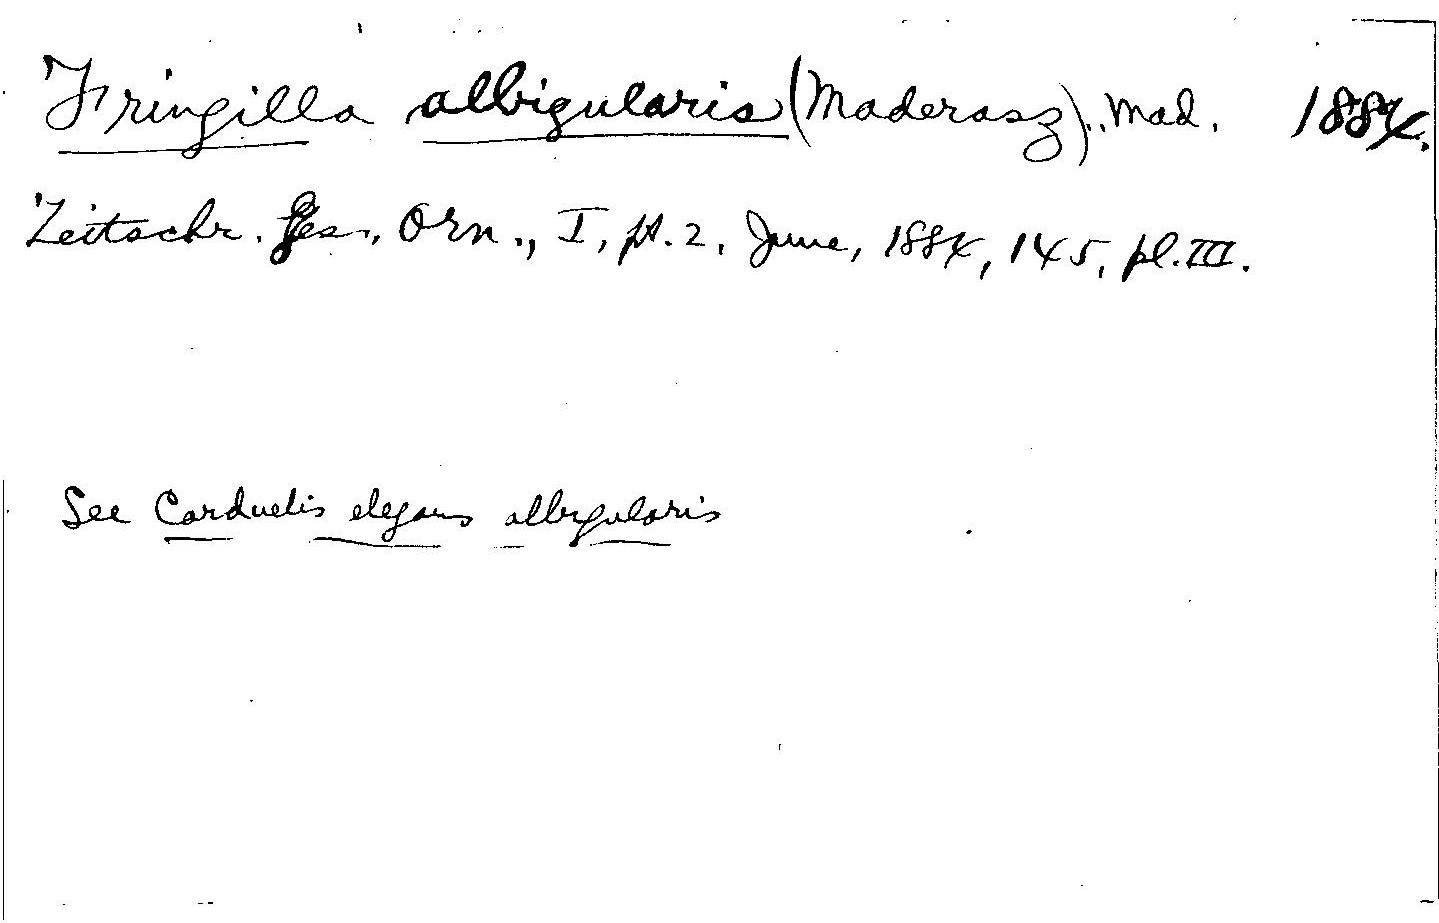 Fringilla albigularis (Maderasz), Mad. 1884.
Zeitschr. Ges., Orn., I, pt. 2, June, 1884, 145, pl. III.
See Carduelis elegans albigularis